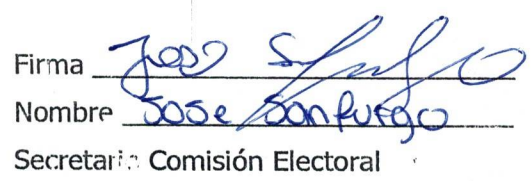 Firma
Nombre Jose Sanfuego
Secretaria Comisión Electoral